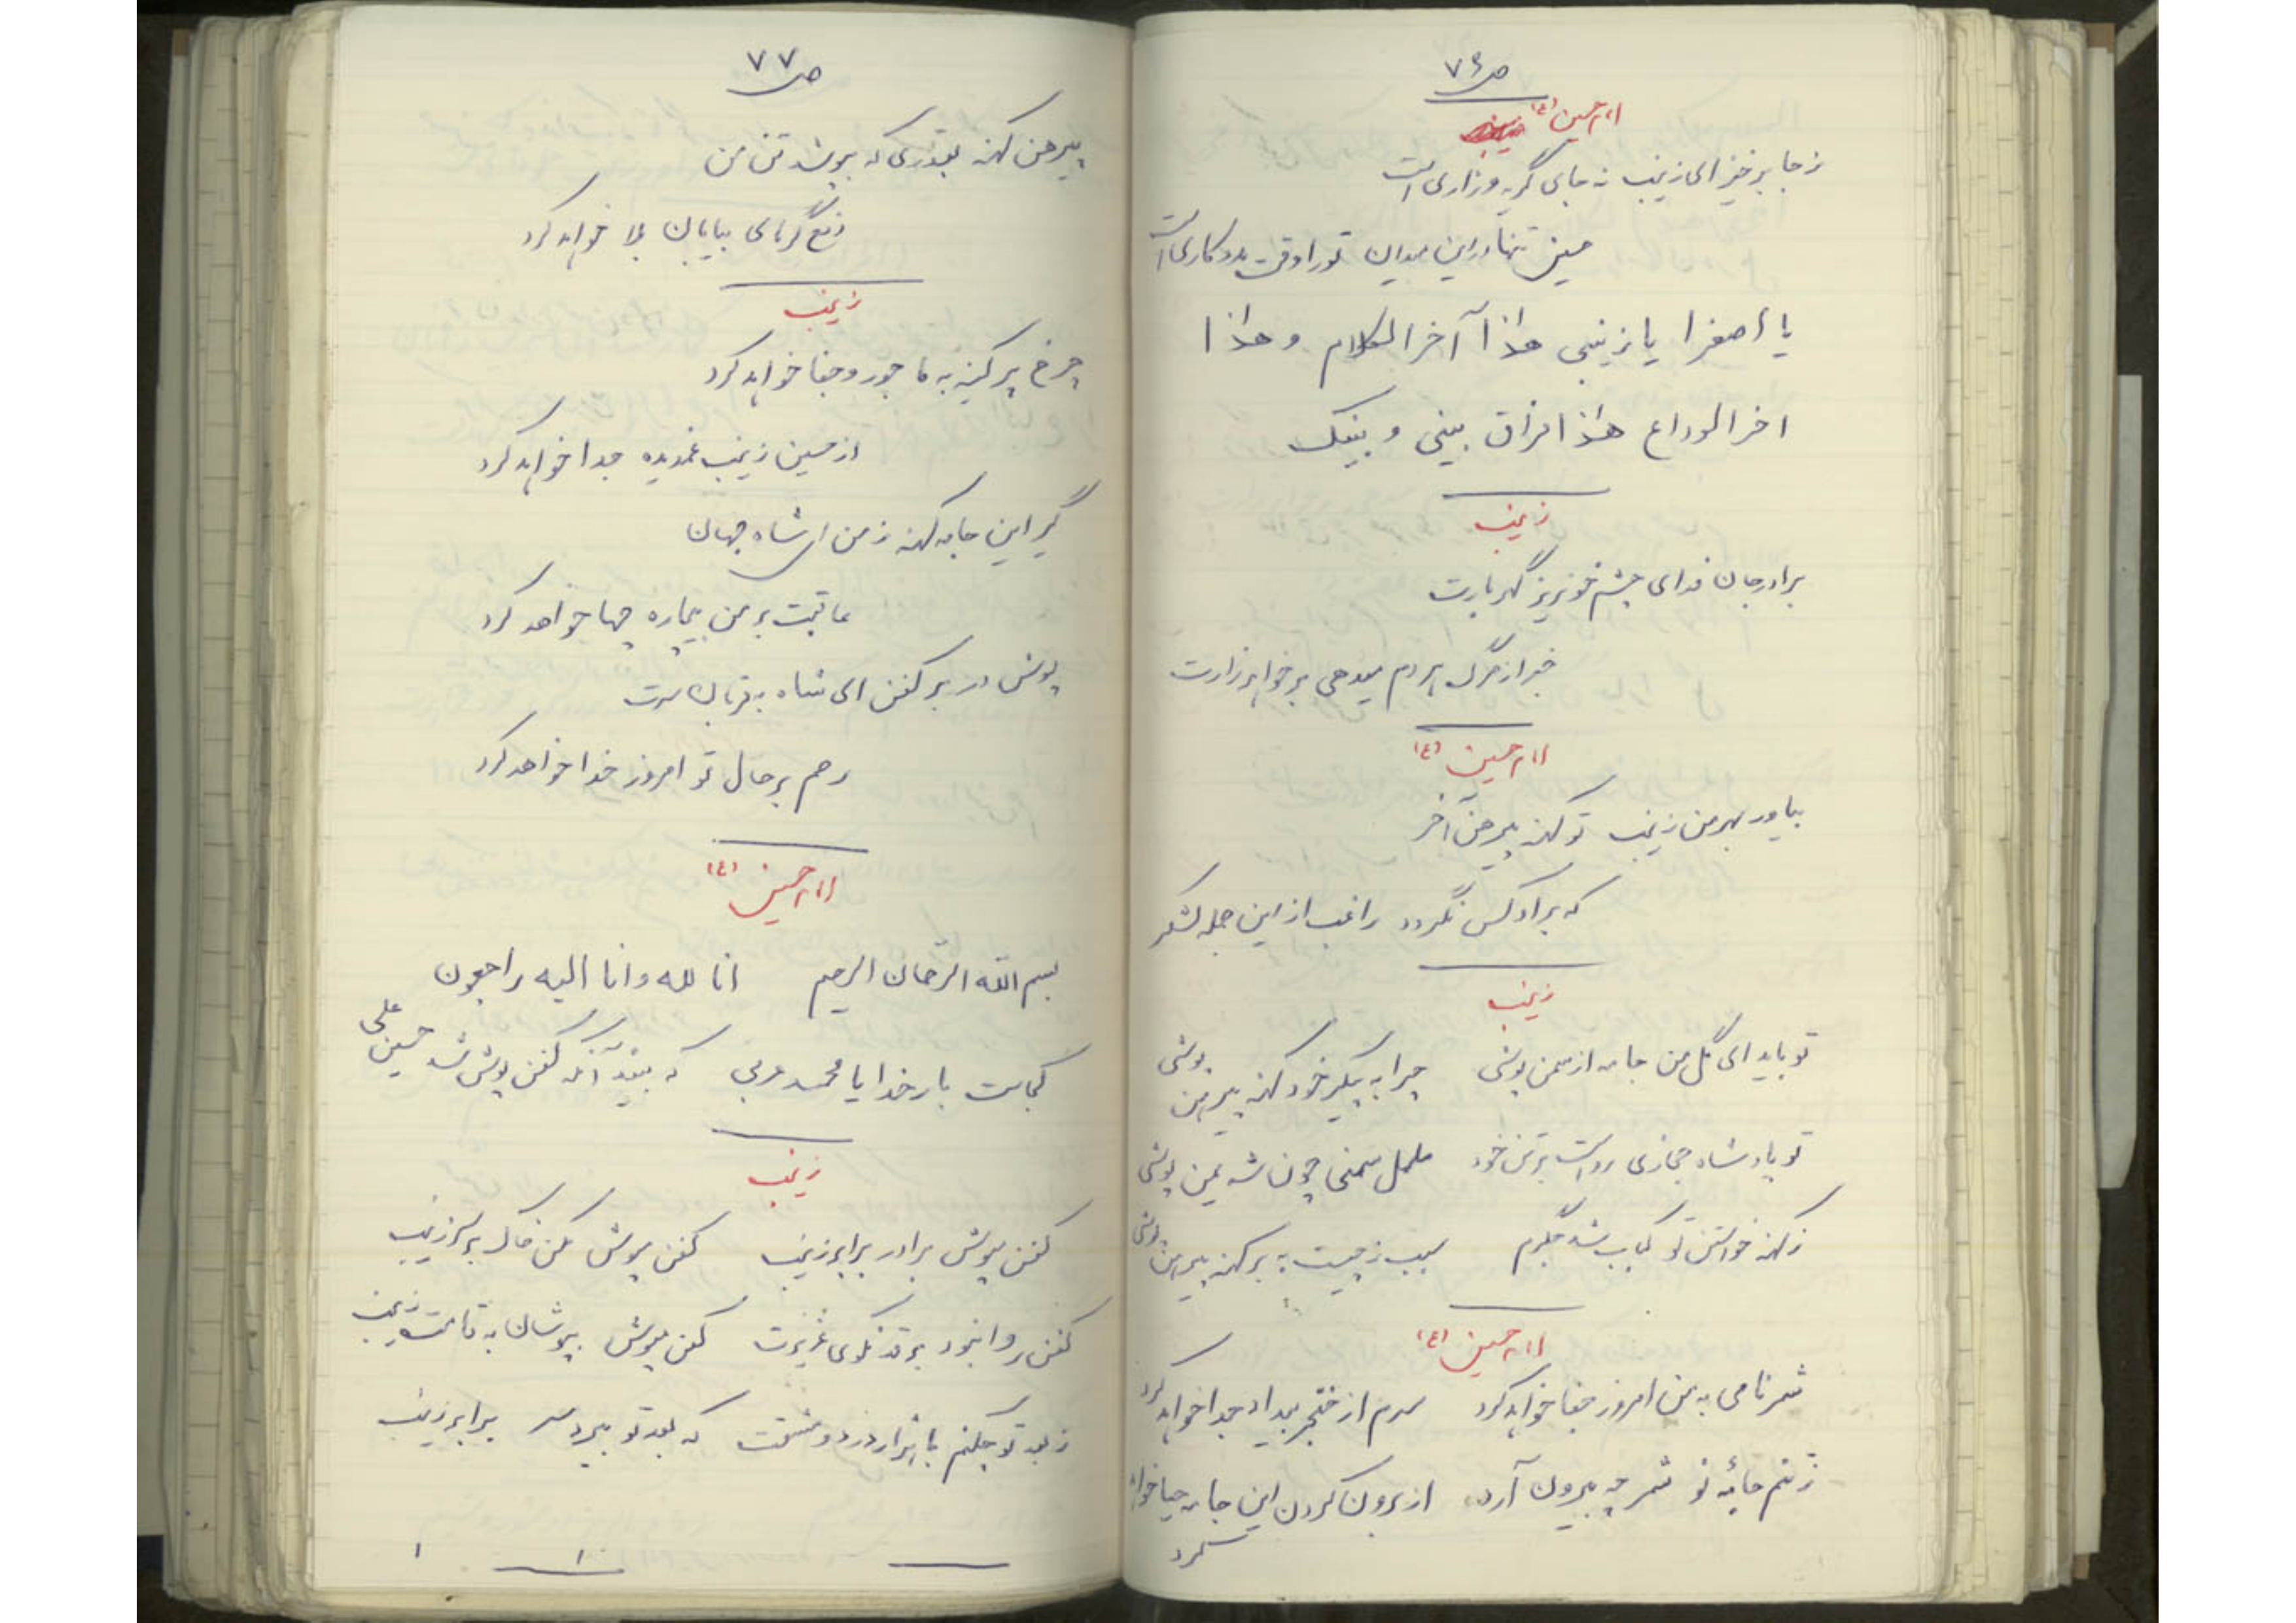 ص ۷۶
امام حسین (ع)
ز جا برخیز ای زینب نه جای گریه و زاری است
حسین تنها در این میدان تو را وقت مددکاری است
یا اصغرا یا زینبی هذا آخر الکلام و هذا
اخر الوداع هذا فراق بینی و بینک
زینب
برادر جان فدای چشم خونریز گهربارت
خبر از مرگ هر دم میدهی بر خواهر زارت
امام حسین (ع)
بیاور بهر من زینب تو کهنه پیرهن آخر
که بر او کس نگردد راغب از این جمله لشکر
زینب
تو باید ای گل من جامه از سمن پوشی چرا به پیکر خود کهنه پیرهن پوشی
تو پادشاه حجازی رواست بر تن خود چون شه یمن پوشی
ز کهنه خواستن تو کباب شد جگرم سبب ز چیست به بر کهنه پیرهن پوشی
امام حسین (ع)
شمر نامی به من امروز جفا خواهد کرد سرم از خنجر بیداد جدا خواهد کرد
ز تنم جامه نو شمر چه بیرون آرد از برون کردن این جامه حیا خواهد کرد
ص ۷۷
پیرهن کهنه بقدری که بپوشد تن من
رفع گرمای بیابان بلا خواهد کرد
زینب
چرخ پر کینه به ما جور و جفا خواهد کرد
از حسین زینب غمدیده جدا خواهد کرد
گیر این جامه کهنه ز من ای شاه جهان
عاقبت بر من بیچاره چها خواهد کرد
پوش در بر کفن ای شاه به قربان سرت
رحم بر حال تو امروز خدا خواهد کرد
امام حسین (ع)
بسم الله الرحمان الرحیم انا لله و انا الیه راجعون
کجاست بار خدایا محمد عربی که بیند آنکه کفن پوش شد حسین علی
زینب
کفن مپوش برادر برابر زینب کفن مپوش مکن خاک بر سر زینب
کفن روا نبود بر قد نکوی عزیزت کفن مپوش بپوشان به قامت زینب
ز بعد تو چکنم با هزار درد و مشقت که بعد تو ببرد سر برابر زینب